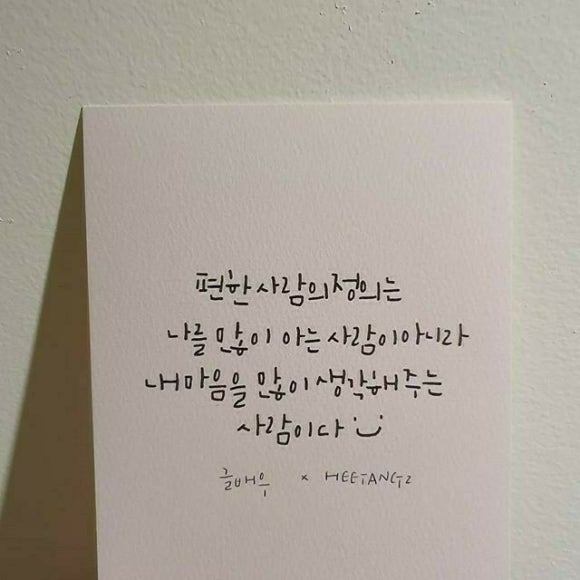 편한 사람의 정의는
나를 많이 아는 사람이 아니라
내 마음을 많이 생각해 주는
사람이다
글배우 x HEETANG2